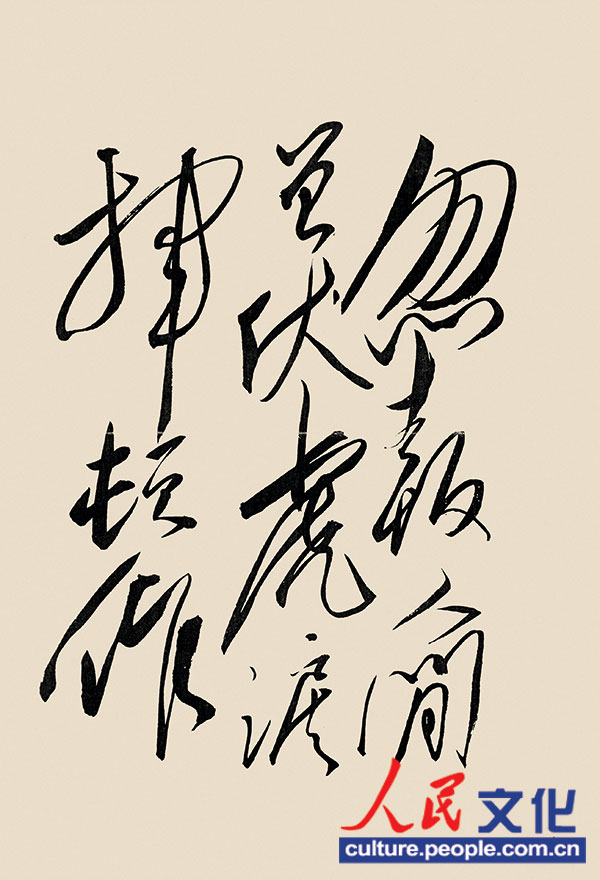 忽报人间
曾伏虎泪
飞顿作
人民文化
culture.people.com.cn